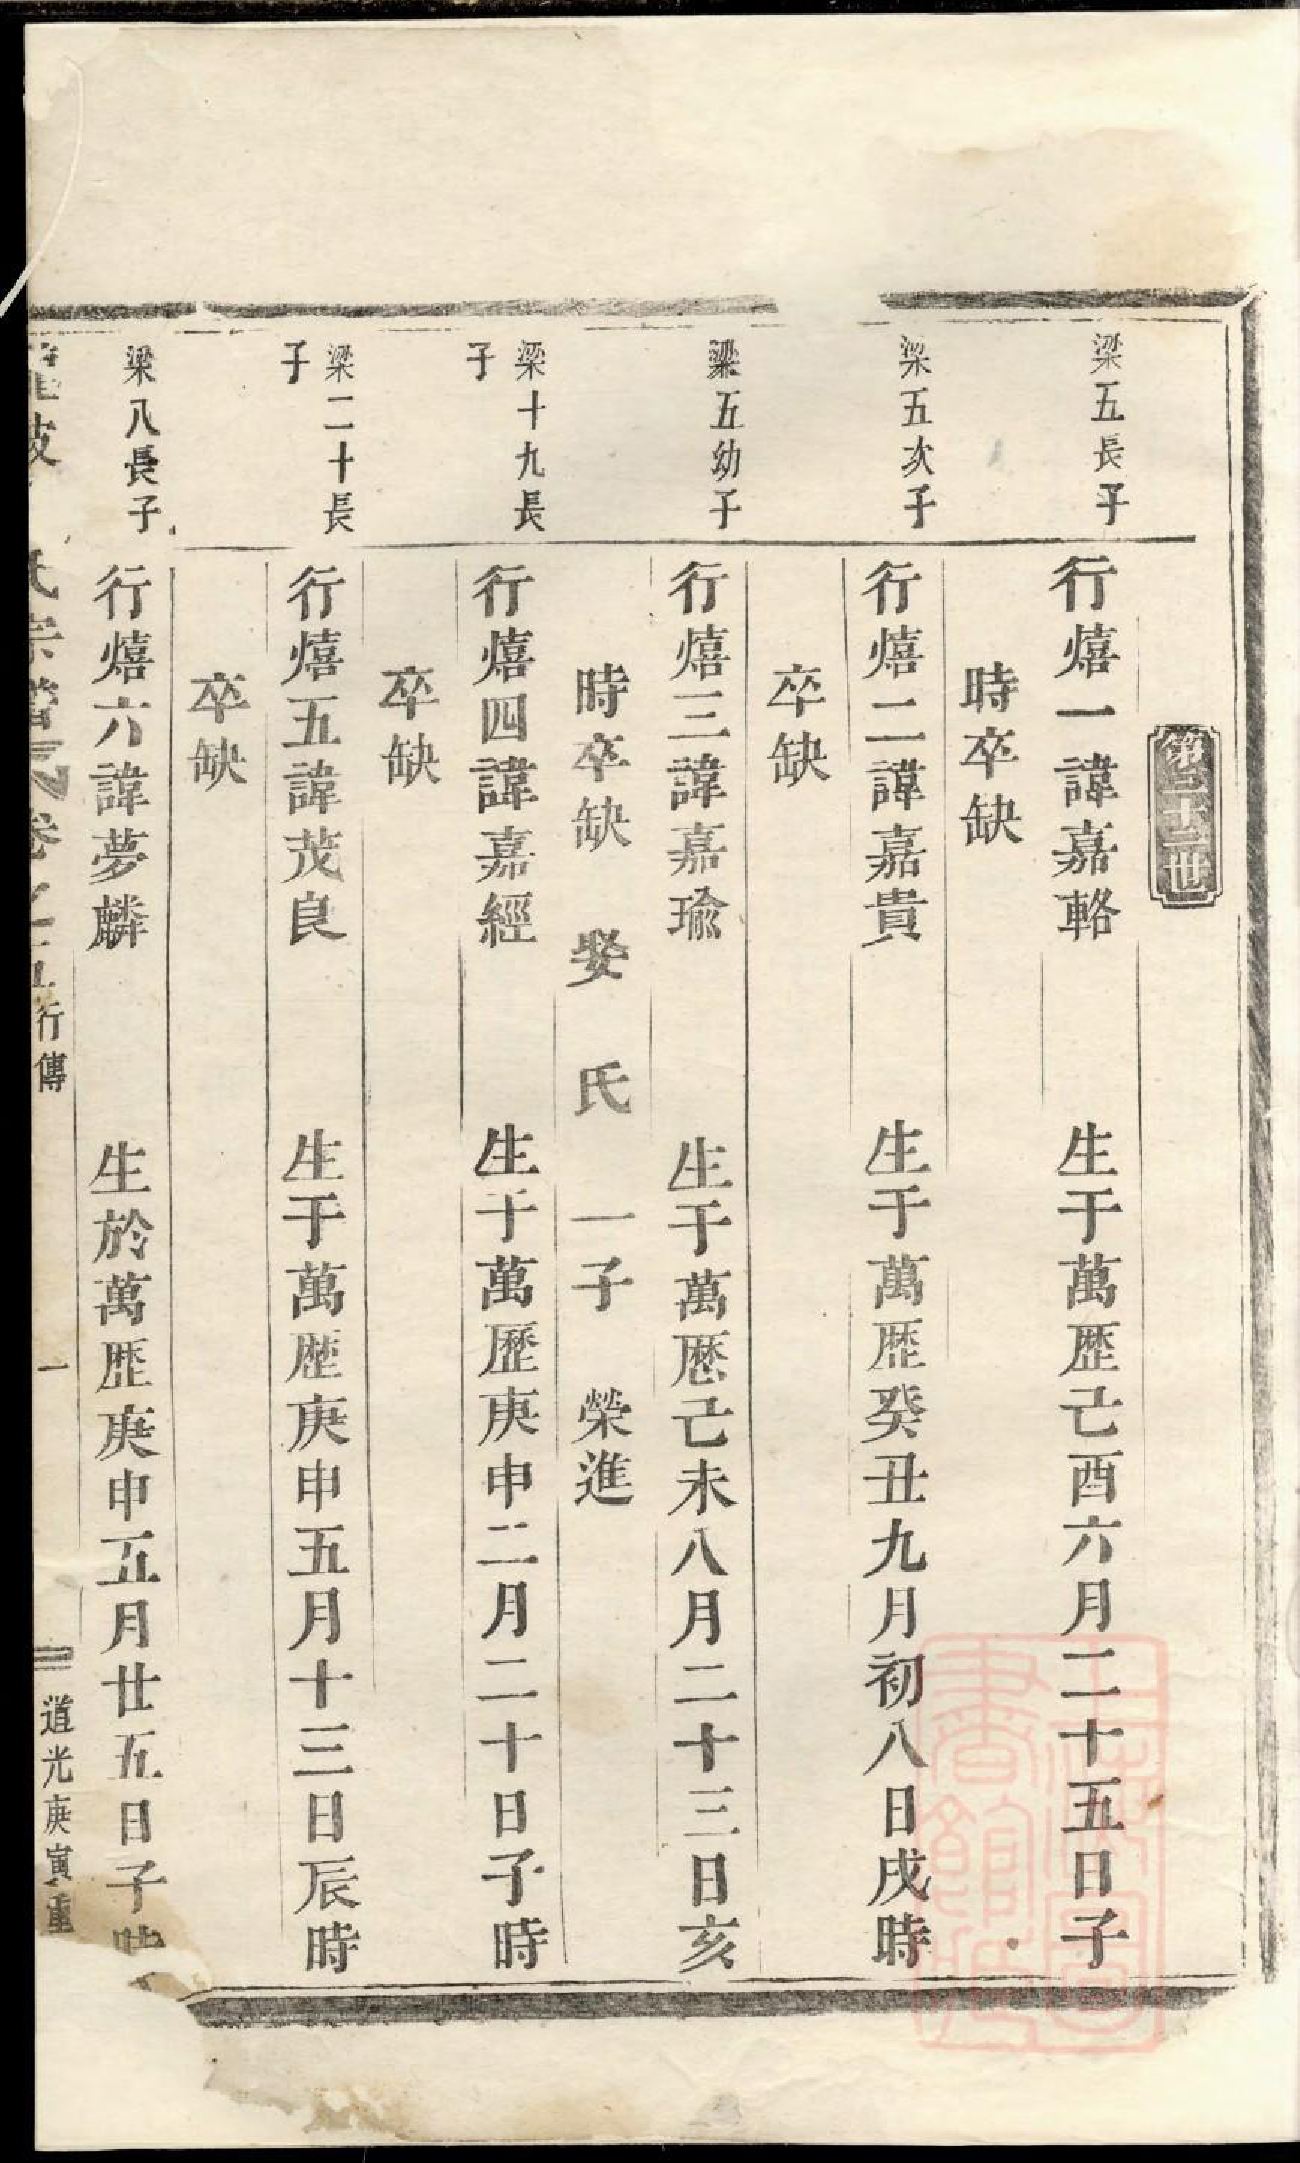 第二十三世
梁五長子
行熺一諱嘉輅 生于萬歷己酉六月二十五日子
時卒缺
梁五次子
行熺二諱嘉貴 生于萬歷癸丑九月初八日戌時
卒缺
梁五幼子
行熺三諱嘉瑜 生于萬歷己未八月二十三日亥
時卒缺 娶 氏 一子 榮進
梁十九長
子
行熺四諱嘉經 生于萬歷庚申二月二十日子時
卒缺
梁二十長
子
行熺五諱茂良 生于萬歷庚申五月十三日辰時
卒缺
梁八長子
行熺六諱夢麟 生於萬歷庚申五月廿五日子時
氏宗譜 卷之五 行傳 一 道光庚寅重